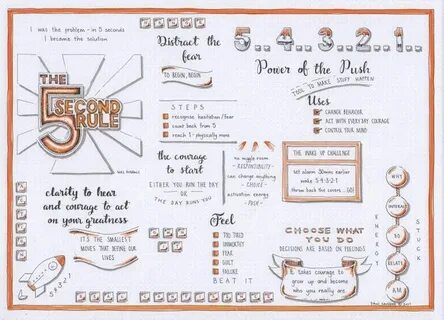 I was the problem - in 5 seconds
I became the solution
THE
5
SECOND
RULE
MEL ROBBINS
clarity to hear
and courage to act
on your greatness
IT'S THE SMALLEST
MOVES THAT DEFINE OUR
LIVES
5-4-3-2-1
Distract the
fear
TO BEGIN, BEGIN
STEPS
recognise hesitation/fear
count back from 5
reach 1 - physically move
the courage
to start
EITHER YOU RUN THE DAY
OR
THE DAY RUNS YOU
no wiggle room
- RESPONSIBILITY -
can change anything
- CHOICE -
activation energy
- PUSH -
Feel
TOO TIRED
UNWORTHY
FEAR
GUILT
FAILURE
BEAT IT
5..4..3..2..1..
Power of the Push
TOOL TO MAKE STUFF HAPPEN
Uses
CHANGE BEHAVIOR
ACT WITH EVERYDAY COURAGE
CONTROL YOUR MIND
THE WAKE UP CHALLENGE
set alarm 30mins earlier
wake 5-4-3-2-1
throw back the covers ...GO!
CHOOSE WHAT
YOU DO
DECISIONS ARE BASED ON FEELINGS
It takes courage to
grow up and become
who you really are
ENERGY
STUCK
WHY
SO
RELATE
AM